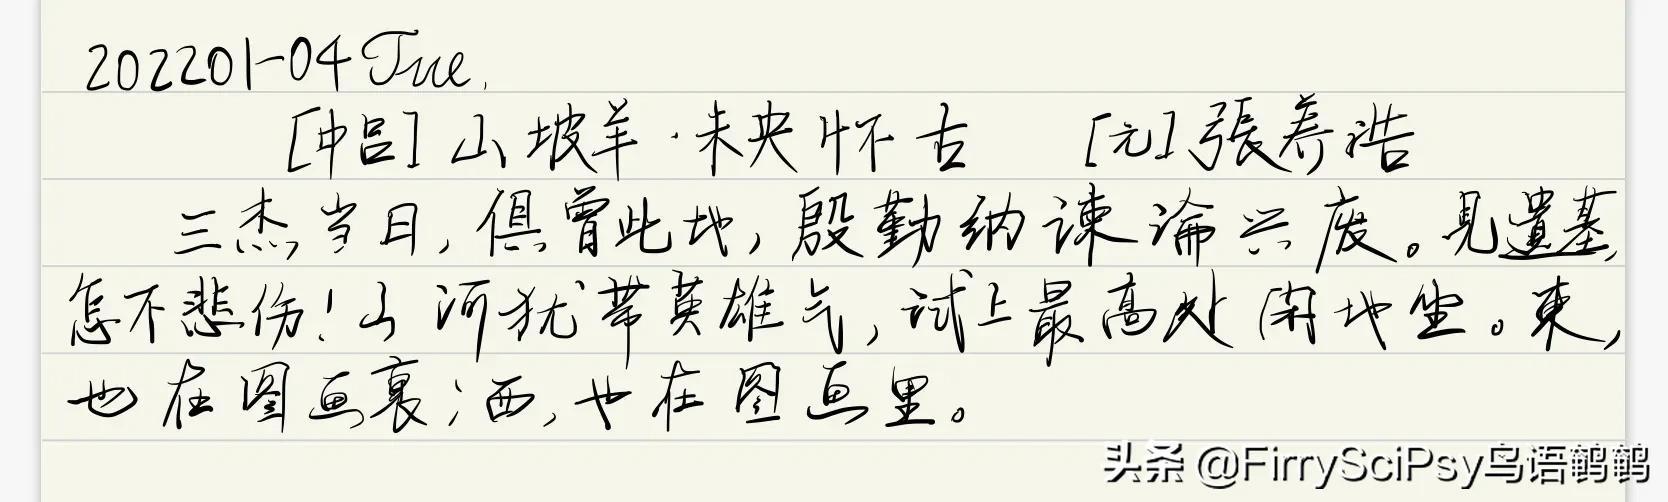 202201-04 Tue.
[中吕]山坡羊·未央怀古 [元]張养浩
三杰当日,俱曾此地,殷勤纳諫論兴废。見遺基,
怎不悲伤!山河犹带英雄气,试上最高处閑地坐。東,
也在图画裏;西,也在图画里。
头条 @FirrySciPsy鸟语鹌鹌